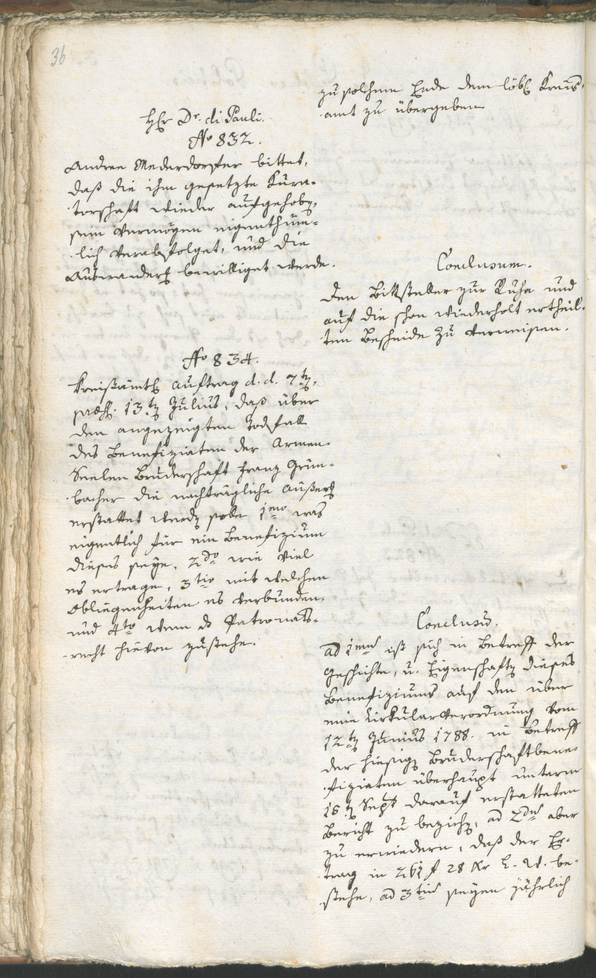 36
zu solchem Ende dem löbl. Kreis-
amt zu übergeben
Hr Dr. di Pauli
No 832.
Andree Mederdorfer bittet,
daß die ihm gesetzte Kura-
torschaft wieder aufgehoben,
sein Vermögen eigenthüm-
lich verabfolget, und die
Auswanderg bewilliget werde.
Conclusum.
Den Bittsteller zur Ruhe und
auf die schon wiederholt ertheil-
ten Bescheide zu verweisen.
No 834.
Kreisämtl. Auftrag d. d. 7ten,
präs. 13ten Julius, daß über
den angezeigten Todfall
des Benefiziaten der Armen-
Seelen Bruderschaft Franz Grün-
bacher die nachträgliche Äußerg
erstattet werden solle 1mo was
eigentlich für ein Benefizium
dieses seye, 2do wie viel
es ertrage, 3tio mit welchen
Obliegenheiten es verbunden,
und 4to wem das Patronats-
recht hievon zustehe.
Conclus.
ad 1mum sich in Betreff der
Geschichte, u. Eigenschaft dieses
Benefiziums auf den über
eine Zirkularverordnung vom
12ten Junius 1788. in Betreff
der hiesigen Bruderschaftbene-
fiziaten überhaupt unterm
15ten Sept. darauf erstatteten
Bericht zu beziehen, ad 2dum aber
zu erwiedern, daß der Er-
trag in 261 f 28 Kr. T. W. be-
stehe, ad 3tium seyen jährlich